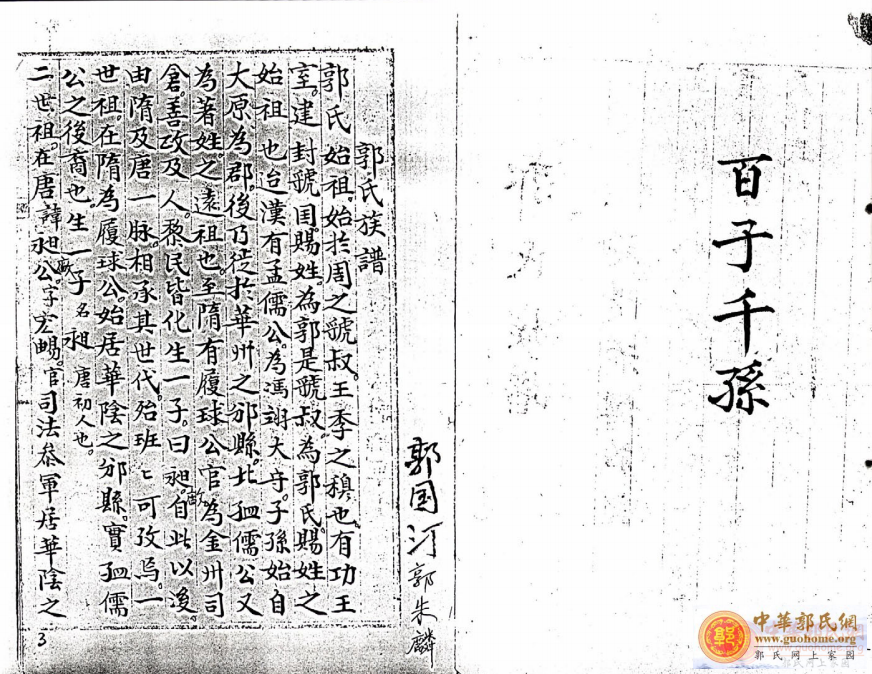 百子千孫
郭国汀
郭朱麟
郭氏族譜
郭氏始祖。始於周之虢叔。王季之穆也。有功王
室。建封虢国。賜姓。為郭是虢叔。為郭氏。賜姓之
始祖也迨漢有孟儒公。為馮翊大守。子孫始自
大原為郡。後乃徙於華州之邠縣。此孟儒公又
為著姓。之遠祖也。至隋有履球公官為金州司
倉。善政及人。黎民皆化生一子。曰昶自此以後。
由隋及唐一脉。相承其世代。殆班〻可孜焉。一
世祖。在隋為履球公。始居華陰之邠縣。實孟儒
公之後裔也。生一子名昶唐初人也。
二世祖。在唐諱昶公。字宏暘。官司法叅軍居華陰之
3
中華郭氏網
www.guohome.org
郭氏网上家园